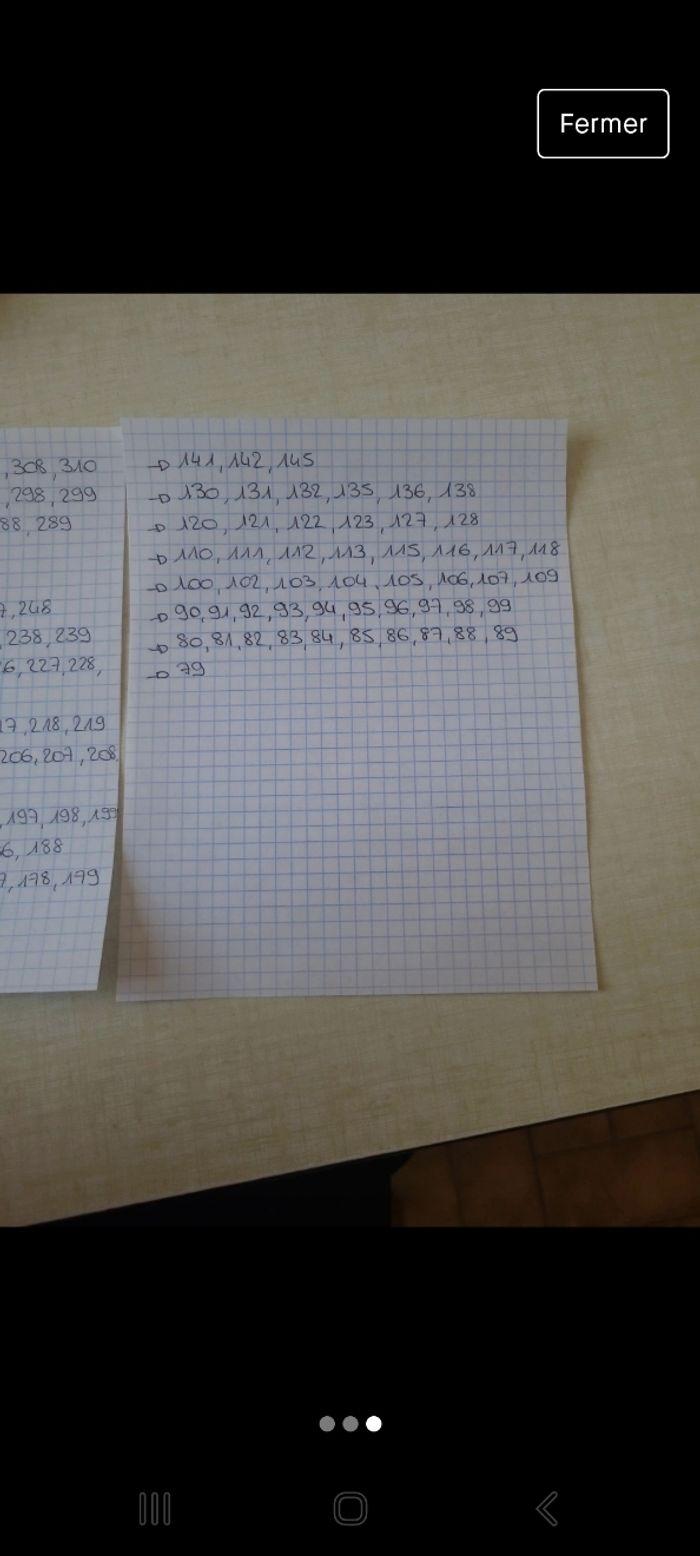 Fermer
, 308, 310
, 298, 299
88, 289
7, 248
, 238, 239
6, 227, 228,
17, 218, 219
206, 207, 208
, 197, 198, 199
6, 188
7, 178, 179
→ 141, 142, 145
→ 130, 131, 132, 135, 136, 138
→ 120, 121, 122, 123, 127, 128
→ 110, 111, 112, 113, 115, 116, 117, 118
→ 100, 102, 103, 104, 105, 106, 107, 109
→ 90, 91, 92, 93, 94, 95, 96, 97, 98, 99
→ 80, 81, 82, 83, 84, 85, 86, 87, 88, 89
→ 79